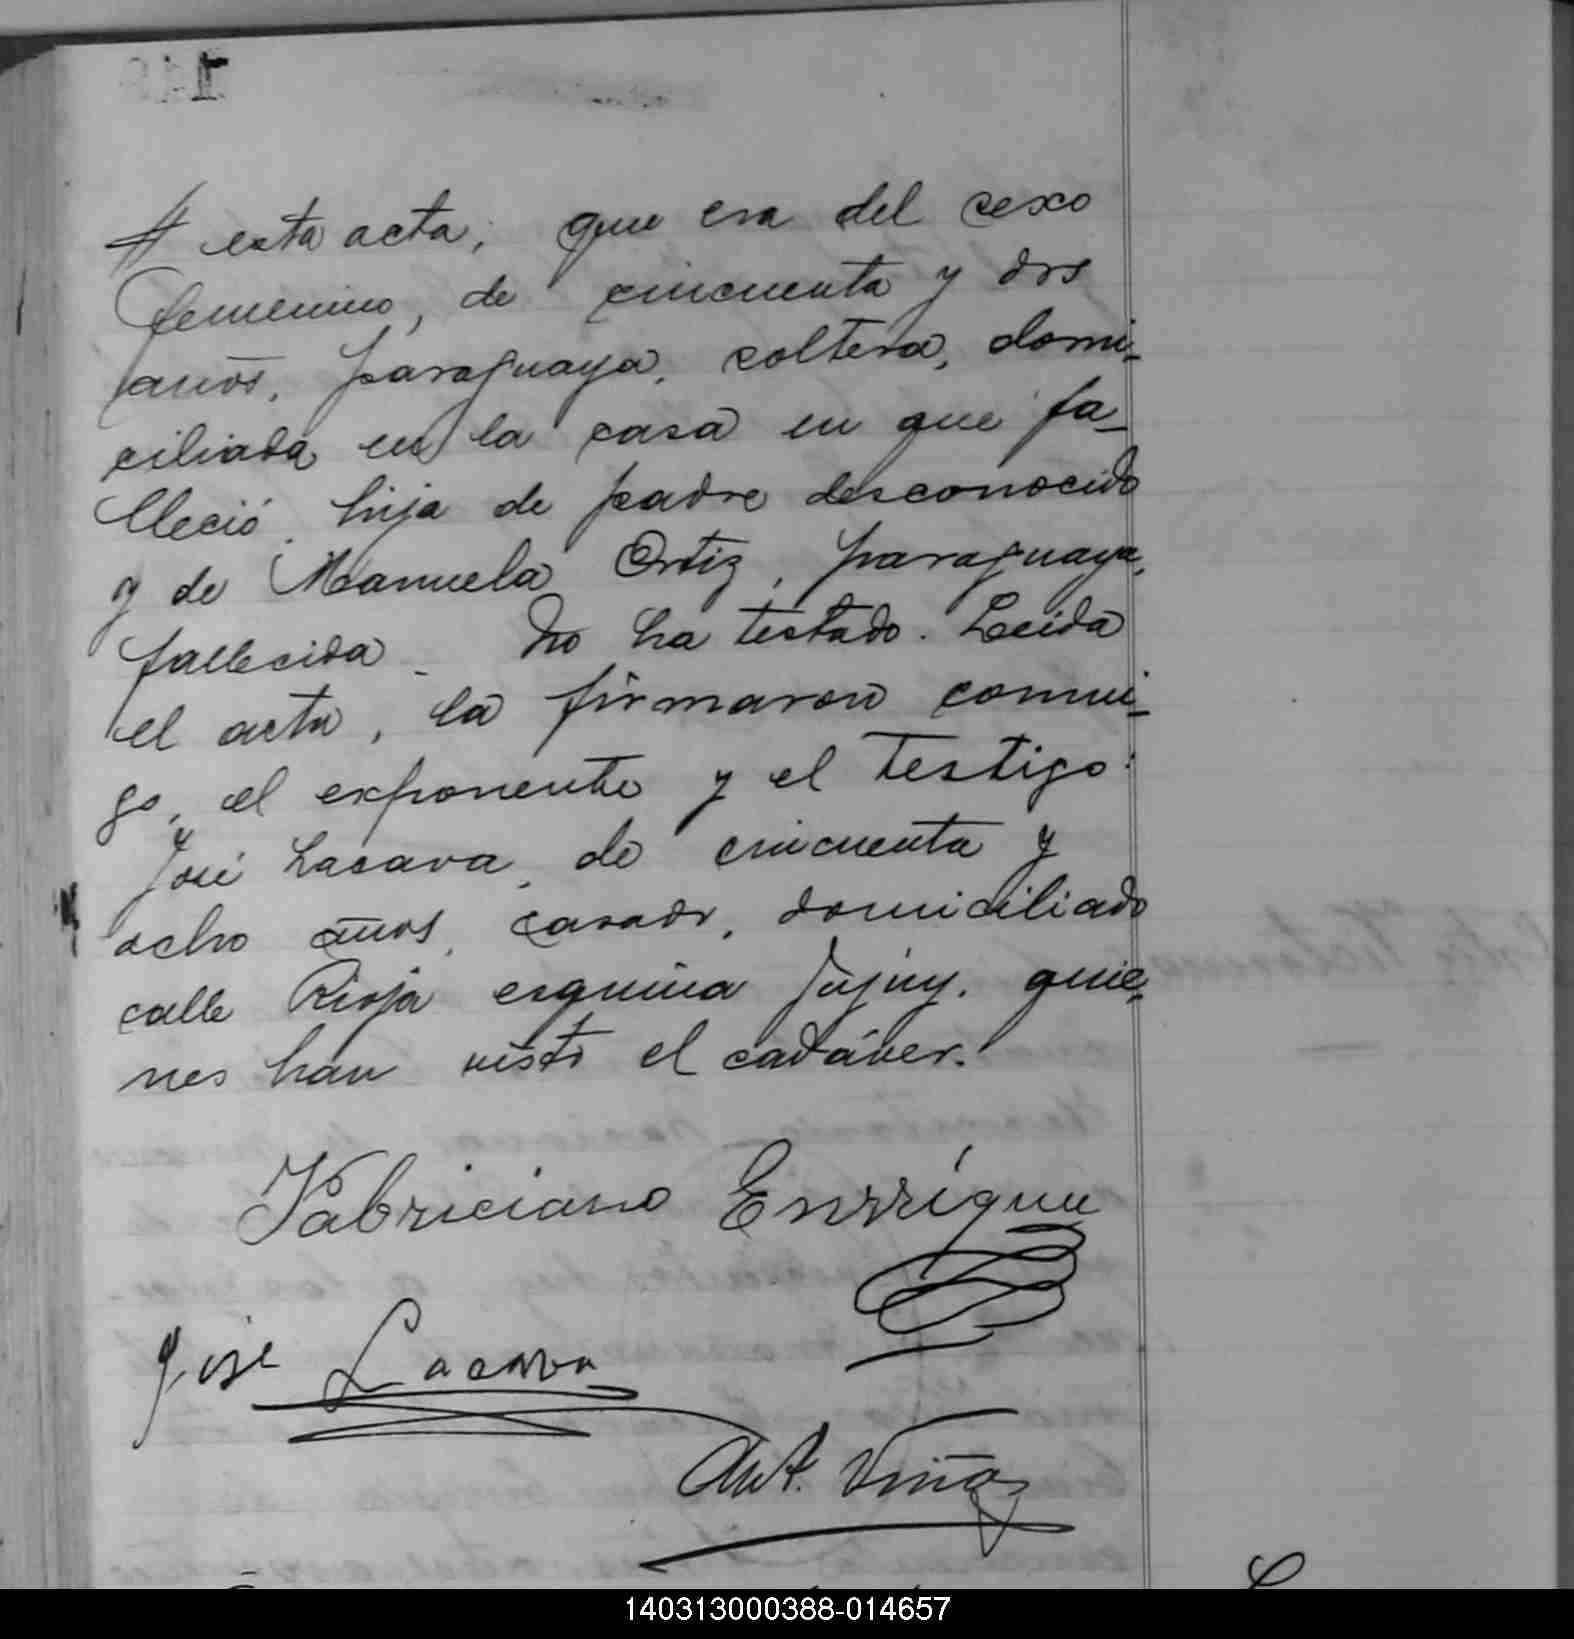 # esta acta, que era del sexo
femenino, de cincuenta y dos
años, paraguaya, soltera, domi-
ciliada en la casa en que fa-
lleció, hija de padre desconocido
y de Manuela Ortiz, paraguaya,
fallecida. No ha testado. Leida
el acta, la firmaron conmi-
go, el exponente y el testigo:
José Lacava, de cincuenta y
ocho años, casado, domiciliado
calle Rioja esquina Jujuy, quie-
nes han visto el cadáver.
Fabriciano Enrríquez
Jose Lacava
Ant. Viñas
140313000388-014657